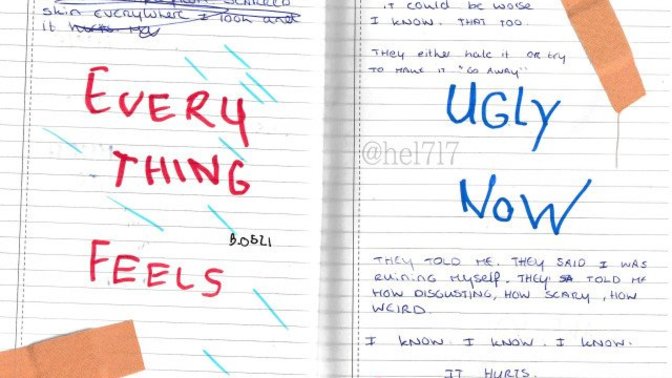 skin everywhere I look and
it
EVERY
THING
FEELS
it could be worse
I KNOW. THAT TOO.
THEY either hate it OR try
TO MAKE IT "GO AWAY"
UGLY
@hel717
NOW
THEY TOLD ME. THEY SAID I WAS
RUINING MYSELF. THEY TOLD ME
HOW DISGUSTING, HOW SCARY, HOW
WEIRD.
I KNOW. I KNOW. I KNOW.
IT HURTS.